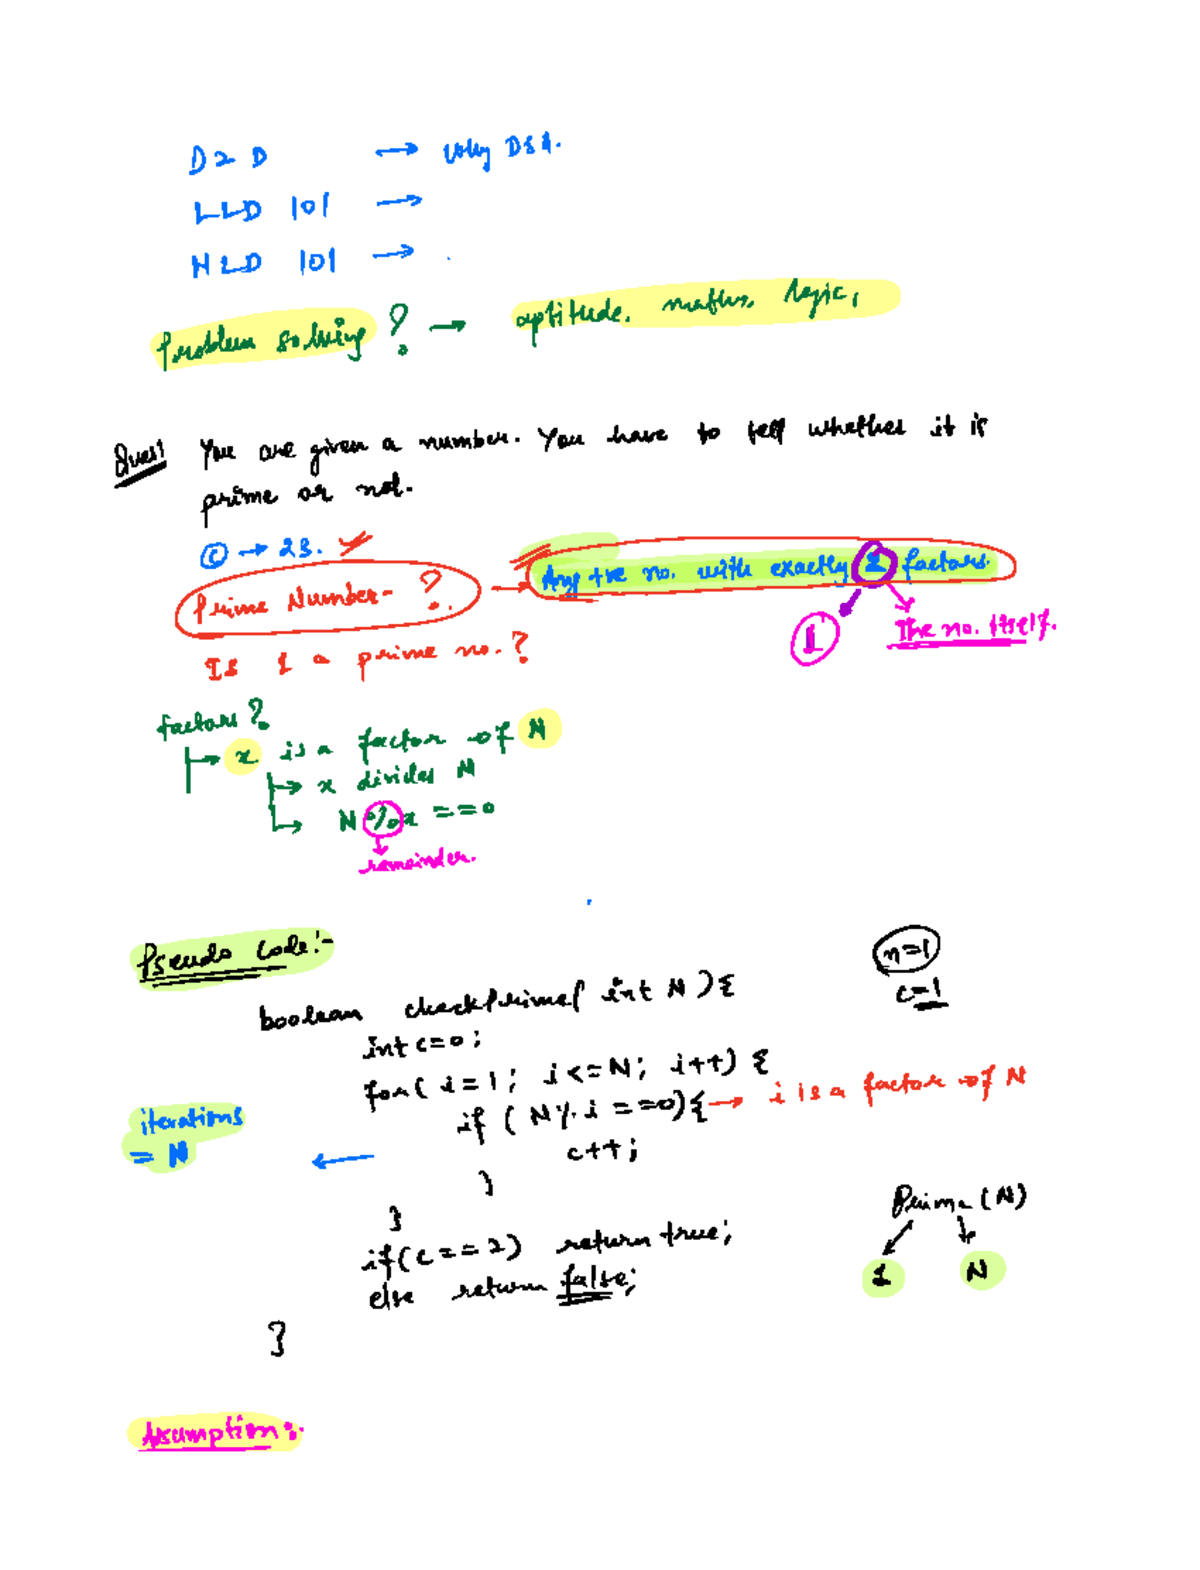 D2D → Why DSA.
LLD 101 →
HLD 101 →
Problem solving ? → aptitude, maths, logic,
Ques1 You are given a number. You have to tell whether it is
prime or not.
→ 23.
Prime Number- ?. → Any +ve no. with exactly 2 factors.
1 The no. itself.
Is 1 a prime no.?
factors ?
→ x is a factor of N
→ x divides N
→ N%x ==0
remainder.
Pseudo Code:-
n=1
c=1
boolean checkPrime( int N ){
int c=0;
for( i=1; i<=N; i++) {
if ( N%i ==0){ → i is a factor of N
c++;
iterations
= N ←
}
}
Prime (N)
1 N
if(c==2) return true;
else return false;
}
Assumption:-